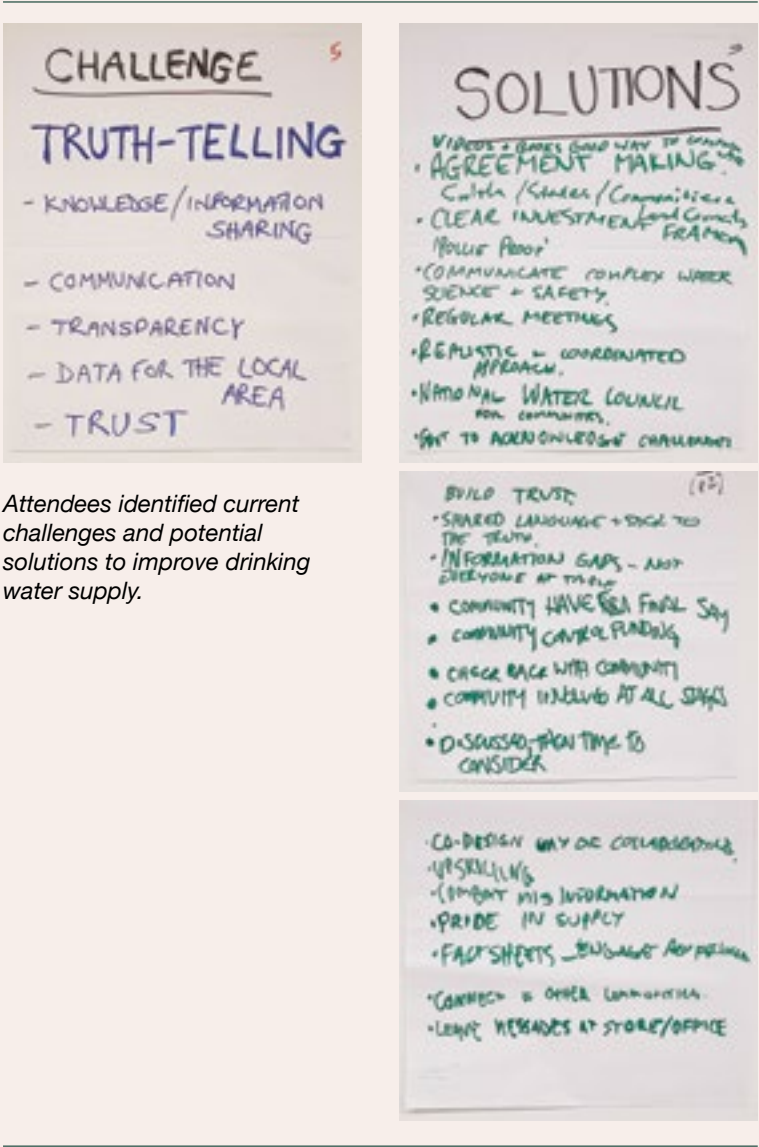 CHALLENGE
5
TRUTH-TELLING
- KNOWLEDGE/INFORMATION
SHARING
- COMMUNICATION
- TRANSPARENCY
- DATA FOR THE LOCAL
AREA
- TRUST
Attendees identified current
challenges and potential
solutions to improve drinking
water supply.
SOLUTIONS
VIDEOS + BOOKS GOOD WAY TO
• AGREEMENT MAKING
/States/Communities
Land Councils
• CLEAR INVESTMENT
'Pollie Proof'
• COMMUNICATE COMPLEX WATER
SCIENCE + SAFETY.
• REGULAR MEETINGS
• REALISTIC + COORDINATED
APPROACH.
• NATIONAL WATER COUNCIL
FOR COMMUNITIES.
TO ACKNOWLEDGE CHALLENGES
BUILD TRUST
• SHARED LANGUAGE + TO
THE TRUTH.
• INFORMATION GAPS - NOT
EVERYONE AT TABLE
• COMMUNITY HAVE A FINAL SAY
• COMMUNITY CONTROL FUNDING
• CHECK BACK WITH COMMUNITY
• COMMUNITY AT ALL STAGES
• DISCUSSED, THEN TIME TO
CONSIDER
• CO-DESIGN WAY OF
• UPSKILLING
• COMBAT MISINFORMATION
• PRIDE IN SUPPLY
• FACT SHEETS - ENGAGE
• CONNECT OTHER COMMUNITIES.
• LEAVE MESSAGES AT STORE/OFFICE